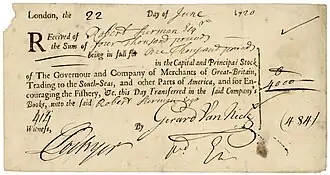 London, the 22 Day of June 1720
Received of Robert Furman Esq
the Sum of four thousand pounds
being in full for one thousand pounds
in the Capital and Principal Stock
of The Governour and Company of Merchants of Great-Britain,
Trading to the South-Seas, and other Parts of America, and for En-
couraging the Fishery, &c. this Day Transferred in the said Company's
Books, unto the said Robert Furman Esq
4000
Witness, By Gerard Van Neck
(484)